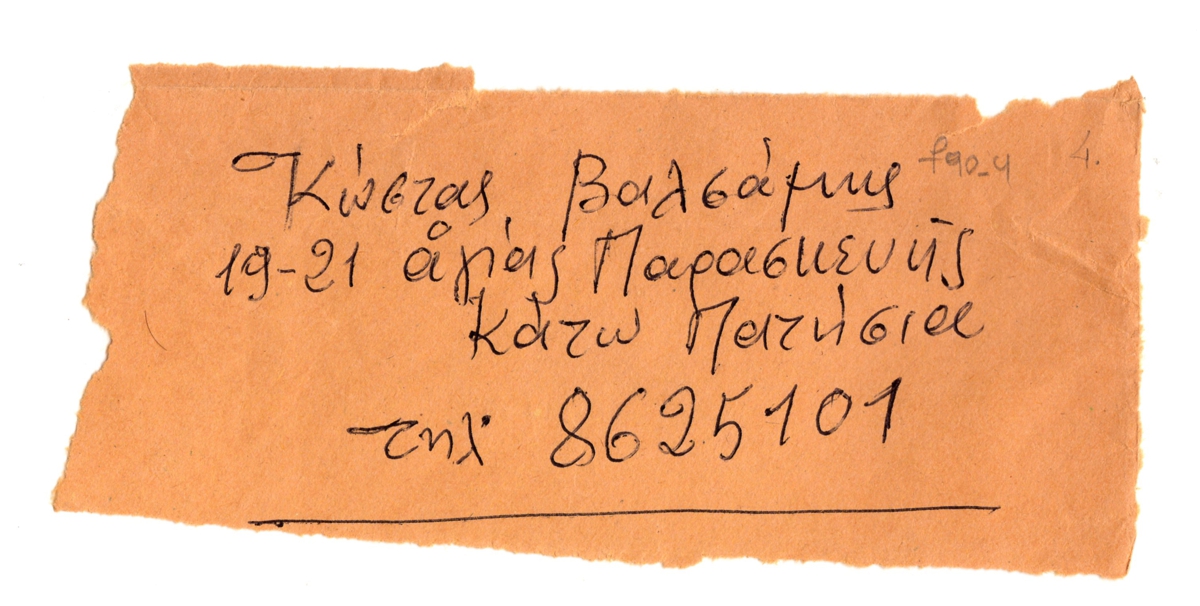 Κώστας Βαλσάμης
19-21 ἁγίας Παρασκευῆς
Κάτω Πατήσια
τηλ 8625101
4.